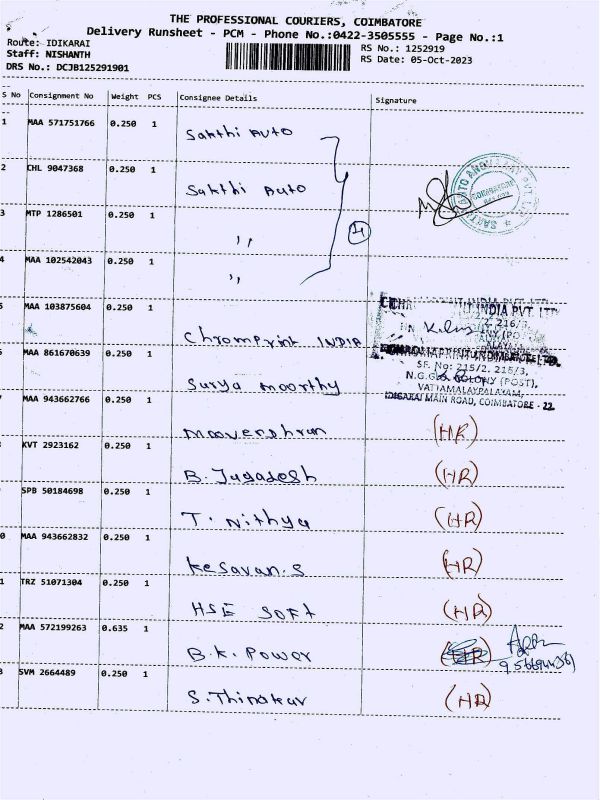 THE PROFESSIONAL COURIERS, COIMBATORE
Delivery Runsheet - PCM - Phone No.:0422-3505555 - Page No.:1
Route: IDIKARAI
RS No.: 1252919
Staff: NISHANTH
RS Date: 05-Oct-2023
DRS No.: DCJB125291901
S No Consignment No Weight PCS Consignee Details Signature
1 MAA 571751766 0.250 1 Sakthi Auto
2 CHL 9047368 0.250 1 Sakthi Auto
3 MTP 1286501 0.250 1 ,,
4
4 MAA 102542043 0.250 1 ,,
5 MAA 103875604 0.250 1 Chromprint INDIA
INDIA PVT. LTD.
SF. No: 215/2, 215/3,
N.G.G.O COLONY (POST),
VATTAMALAIPALAYAM,
IDIGARAI MAIN ROAD, COIMBATORE - 22.
MAA 861670639 0.250 1 Surya moorthy
MAA 943662766 0.250 1 Moovendhran (HR)
KVT 2923162 0.250 1 B. Jugadesh (HR)
SPB 50184698 0.250 1 T. Nithya (HR)
0 MAA 943662832 0.250 1 Kesavan.S (HR)
1 TRZ 51071304 0.250 1 HSE SOFT (HR)
2 MAA 572199263 0.635 1 B.K. Power (HR)
3 SVM 2664489 0.250 1 S.Thinakar (HR)